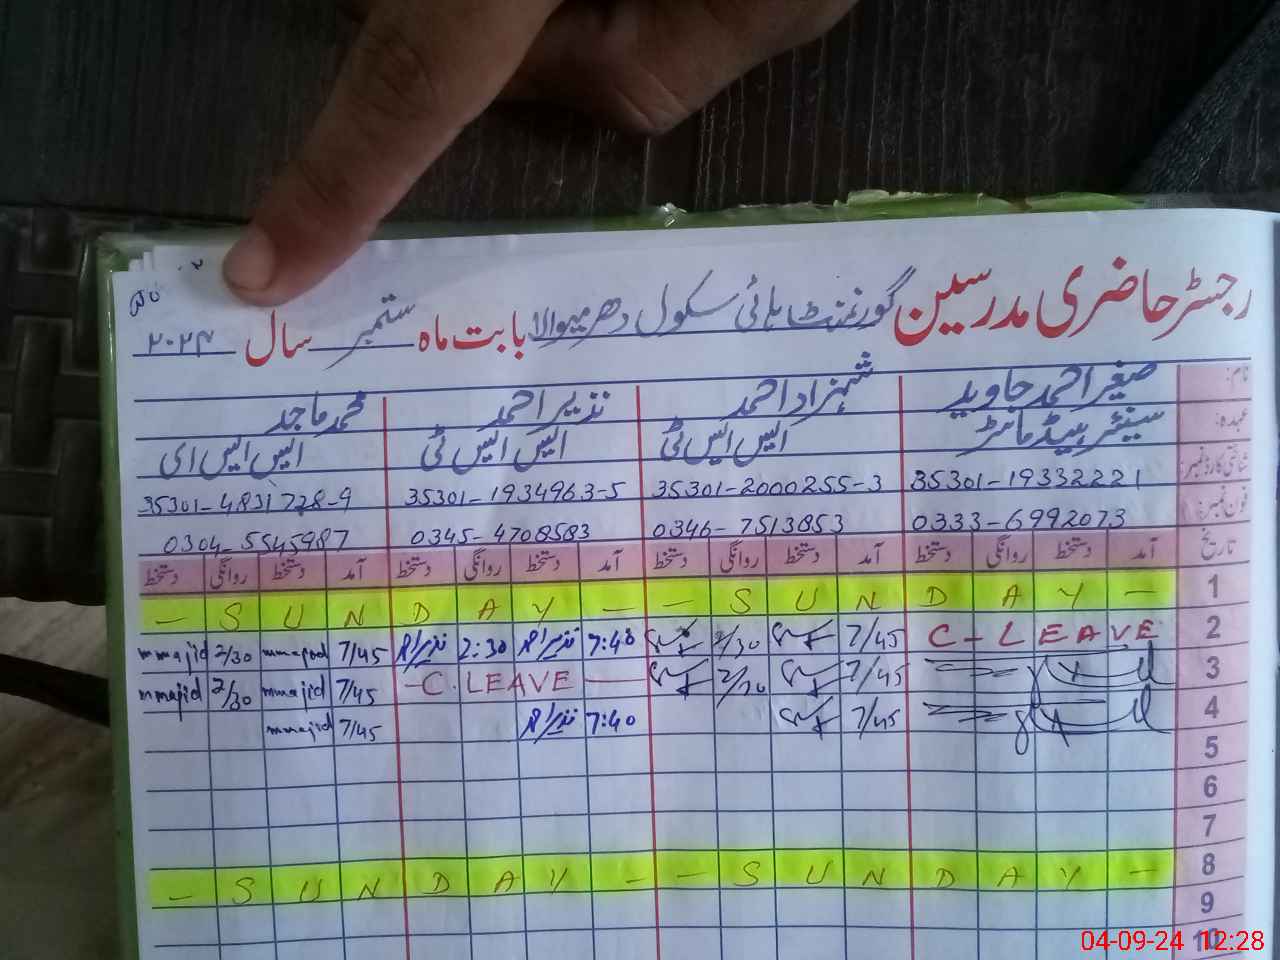 رجسٹر حاضری مدرسین گورنمنٹ ہائی سکول دھرمیوالا بابت ماہ ستمبر سال ۲۰۲۴
نام: صغیر احمد جاوید شہزاد احمد نذیر احمد محمد ماجد
عہدہ: سینئر ہیڈ ماسٹر ایس ایس ٹی ایس ایس ٹی ایس ایس ای
شناختی کارڈ نمبر: 35301-19332221 35301-2000255-3 35301-1934963-5 35301-4831728-9
فون نمبر: 0333-6992073 0346-7513853 0345-4708583 0304-5545987
تاریخ آمد دستخط روانگی دستخط آمد دستخط روانگی دستخط آمد دستخط روانگی دستخط آمد دستخط روانگی دستخط
— S U N D A Y — — S U N D A Y — 1
mmajid 2/30 mmajid 7/45 نذیر احمد 2:30 نذیر احمد 7:40 2/30 7/45 C-LEAVE 2
mmajid 2/30 mmajid 7/45 -C. LEAVE — 2/30 7/45 3
mmajid 7/45 نذیر احمد 7:40 7/45 4
5
6
7
— S U N D A Y — — S U N D A Y — 8
9
10
04-09-24 12:28